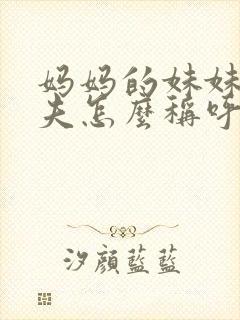 妈妈的妹妹
夫怎麼稱呼
汐顔藍藍